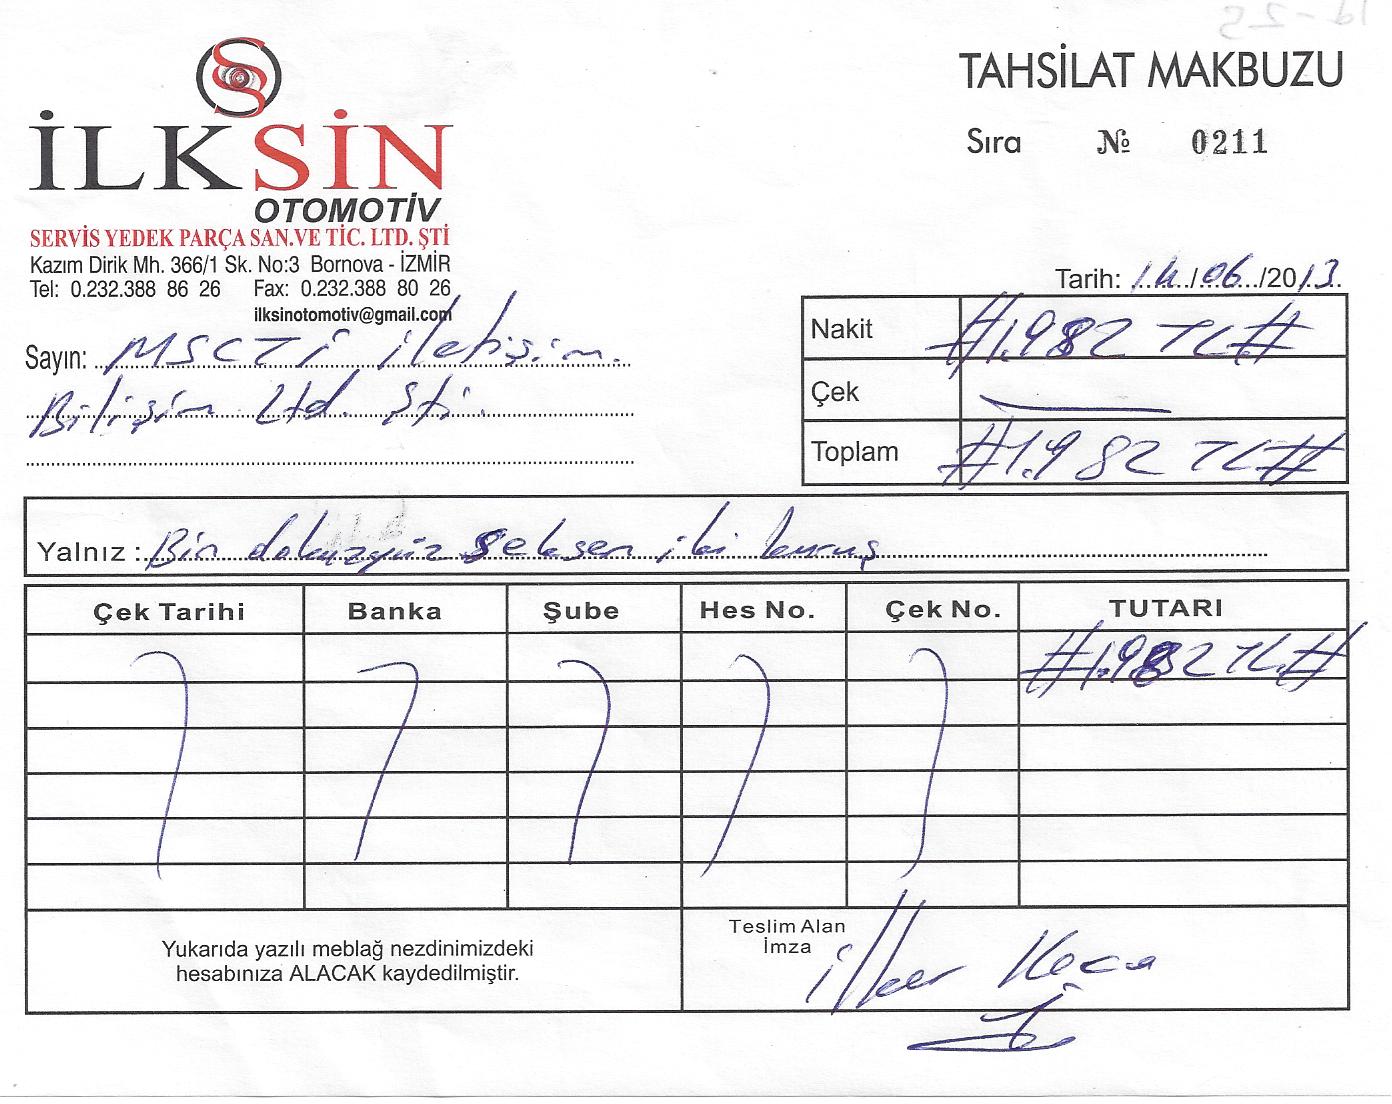 TAHSİLAT MAKBUZU
Sıra № 0211
İLKSİN
OTOMOTİV
SERVİS YEDEK PARÇA SAN.VE TİC. LTD. ŞTİ
Kazım Dirik Mh. 366/1 Sk. No:3 Bornova - İZMİR
Tel: 0.232.388 86 26 Fax: 0.232.388 80 26
ilksinotomotiv@gmail.com
Tarih: 14/06/2013
Sayın: MSCTİ iletişim
Bilişim Ltd. Şti.
Nakit #1.982 TL#
Çek
Toplam #1.982 TL#
Yalnız : Bin dokuzyüz seksen iki kuruş
Çek Tarihi Banka Şube Hes No. Çek No. TUTARI
#1.982 TL#
Yukarıda yazılı meblağ nezdinimizdeki
hesabınıza ALACAK kaydedilmiştir.
Teslim Alan
İmza
ilker Keca